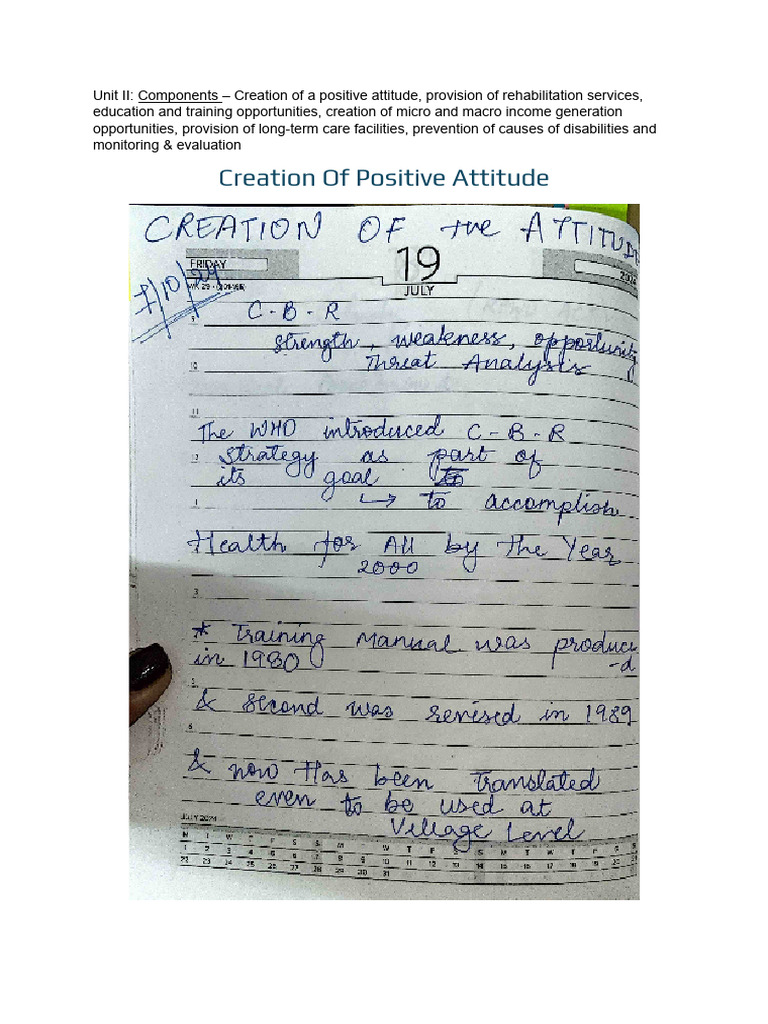 Unit II: Components – Creation of a positive attitude, provision of rehabilitation services,
education and training opportunities, creation of micro and macro income generation
opportunities, provision of long-term care facilities, prevention of causes of disabilities and
monitoring & evaluation
Creation Of Positive Attitude
CREATION OF +ve ATTITUDE
FRIDAY
19
JULY
WK 29
7/10/24
9
C-B-R
strength, weakness, opportunity
10
Threat Analysis
11
The WHO introduced C-B-R
12
strategy as part of
its goal
1
↳ to accomplish
Health for All by The Year
2000
3
* Training Manual was produc
in 1980
-d
& second was revised in 1989
6
& now Has been translated
even to be used at
JULY 2024
Village Level
M T W T F S S M T W T F S S M T W T F S S
1 2 3 4 5 6 7 8 9 10 11 12 13 14 15 16 17 18 19 20 21
22 23 24 25 26 27 28 29 30 31